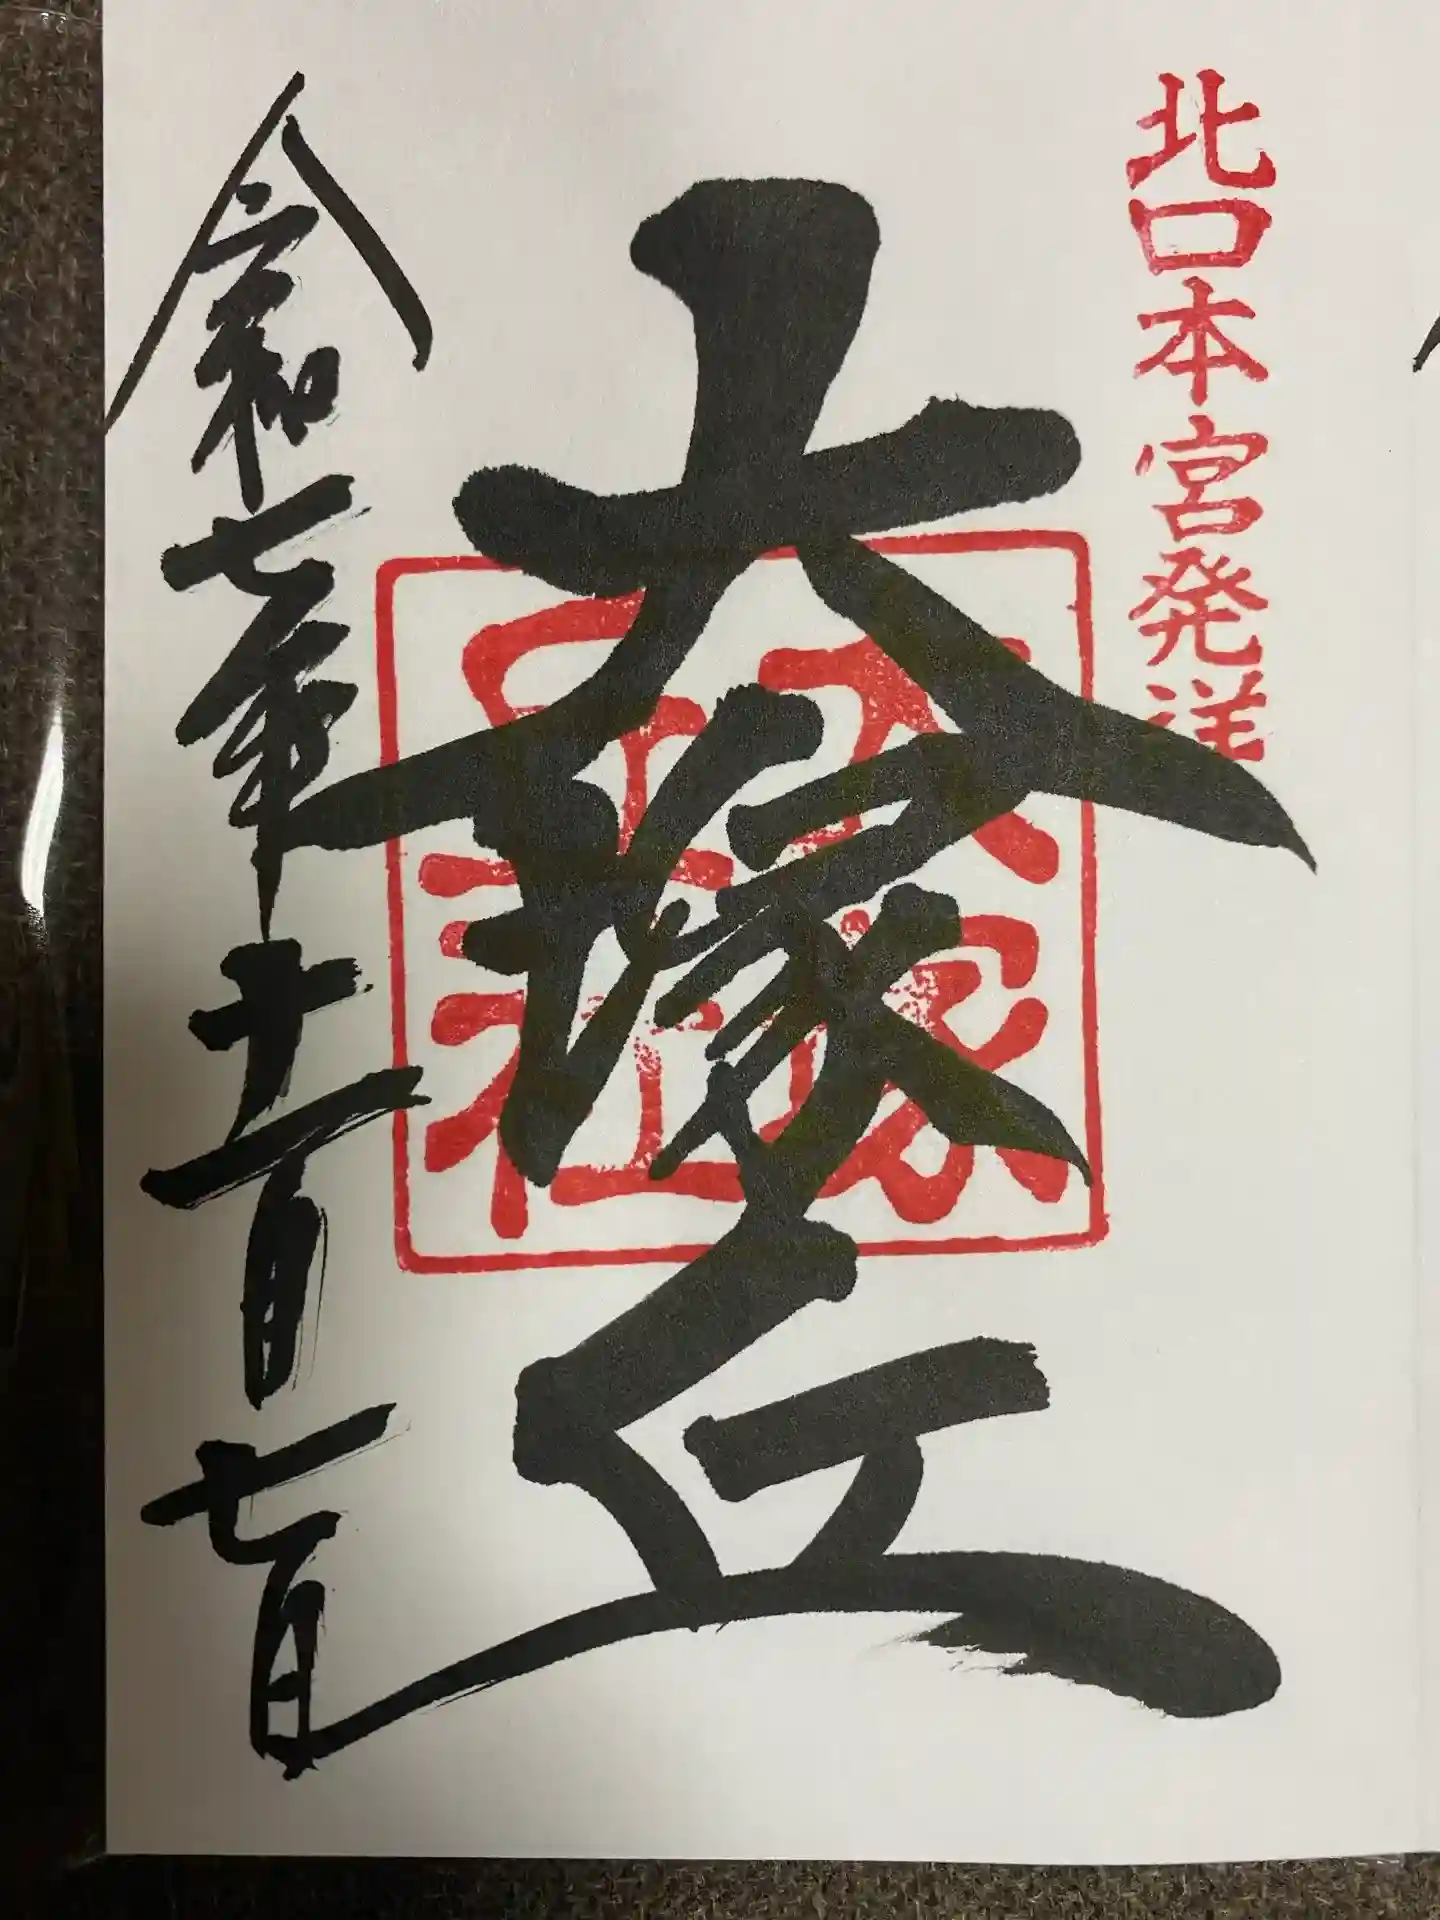 北口本宮発祥
大塚丘
大塚
丘社
令和七年十一月七日